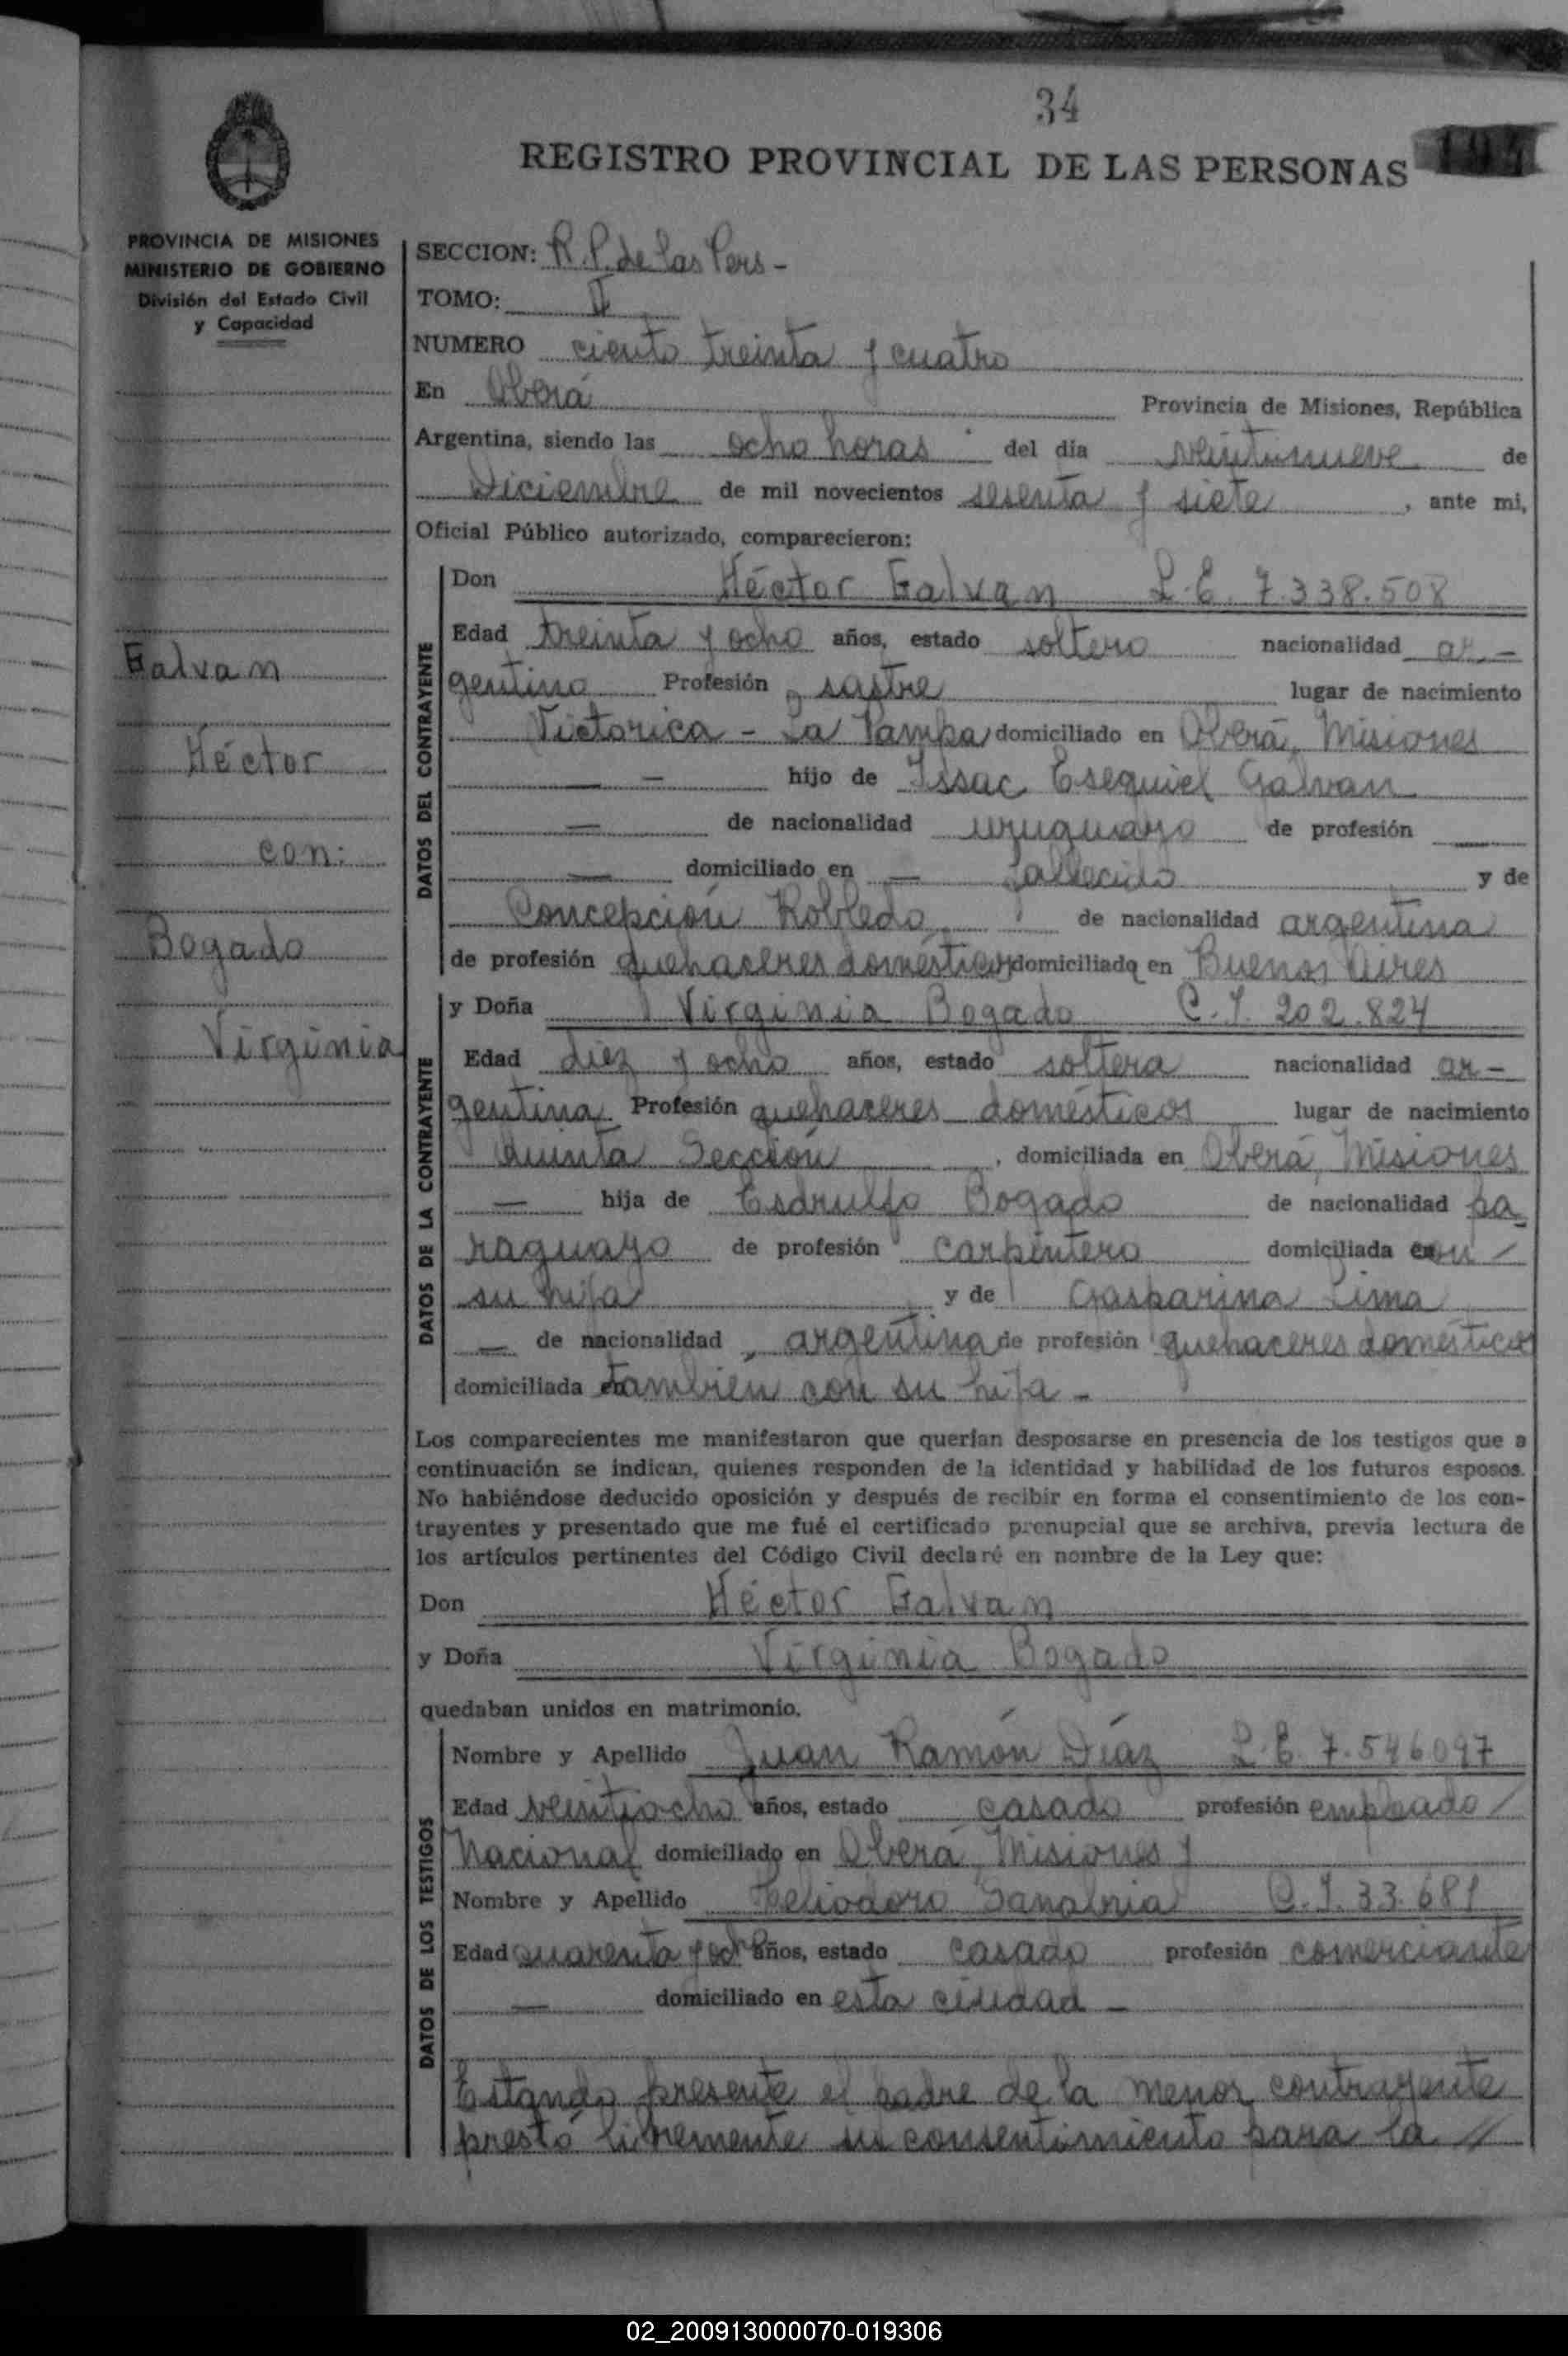 34
REGISTRO PROVINCIAL DE LAS PERSONAS
PROVINCIA DE MISIONES
MINISTERIO DE GOBIERNO
División del Estado Civil
y Capacidad
Galvan
Héctor
con:
Bogado
Virginia
SECCION: R.P. de las Pers-
TOMO: II
NUMERO ciento treinta y cuatro
En Oberá Provincia de Misiones, República
Argentina, siendo las ocho horas del día veintinueve de
Diciembre de mil novecientos sesenta y siete, ante mi,
Oficial Público autorizado, comparecieron:
DATOS DEL CONTRAYENTE
Don Héctor Galvan L.E. 7.338.508
Edad treinta y ocho años, estado soltero nacionalidad ar-
gentino Profesión sastre lugar de nacimiento
Victorica - La Pampa domiciliado en Oberá, Misiones
— hijo de Issac Esequiel Galvan
— de nacionalidad uruguayo de profesión
— domiciliado en — fallecido y de
Concepción Robledo de nacionalidad argentina
de profesión quehaceres domésticos domiciliado en Buenos Aires
DATOS DE LA CONTRAYENTE
y Doña Virginia Bogado C.I. 202.824
Edad diez y ocho años, estado soltera nacionalidad ar-
gentina Profesión quehaceres domésticos lugar de nacimiento
Quinta Sección, domiciliada en Oberá, Misiones
— hija de Esdrulfo Bogado de nacionalidad pa-
raguayo de profesión carpintero domiciliada con
su hija y de Gasparina Lima
— de nacionalidad argentina de profesión quehaceres domésticos
domiciliada en también con su hija -
Los comparecientes me manifestaron que querían desposarse en presencia de los testigos que a
continuación se indican, quienes responden de la identidad y habilidad de los futuros esposos.
No habiéndose deducido oposición y después de recibir en forma el consentimiento de los con-
trayentes y presentado que me fué el certificado prenupcial que se archiva, previa lectura de
los artículos pertinentes del Código Civil declaré en nombre de la Ley que:
Don Héctor Galvan
y Doña Virginia Bogado
quedaban unidos en matrimonio.
DATOS DE LOS TESTIGOS
Nombre y Apellido Juan Ramón Díaz L.E. 7.546097
Edad veintiocho años, estado casado profesión empleado
Nacional domiciliado en Oberá Misiones y
Nombre y Apellido Heliodoro C.I. 33.681
Edad cuarenta y ocho años, estado casado profesión comerciante
— domiciliado en esta ciudad -
Estando presente el padre de la menor contrayente
prestó libremente su consentimiento para la //
02_200913000070-019306